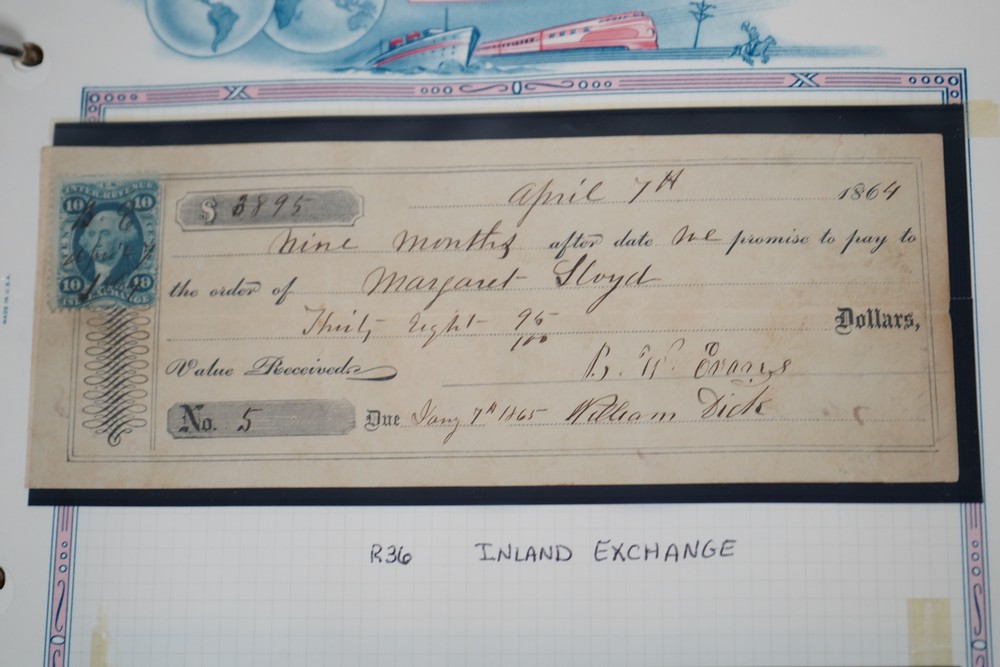 U.S.
INTER. REVENUE
10 10
10 10
INL. EXCHANGE
$ 3895
April 7th 1864
Nine Months after date We promise to pay to
the order of Margaret Lloyd
Thirty Eight 95/100 Dollars,
Value Received
B. W. Evans
No. 5 Due Jany 7th 1865 William Dick
R36 INLAND EXCHANGE
MADE IN U.S.A.